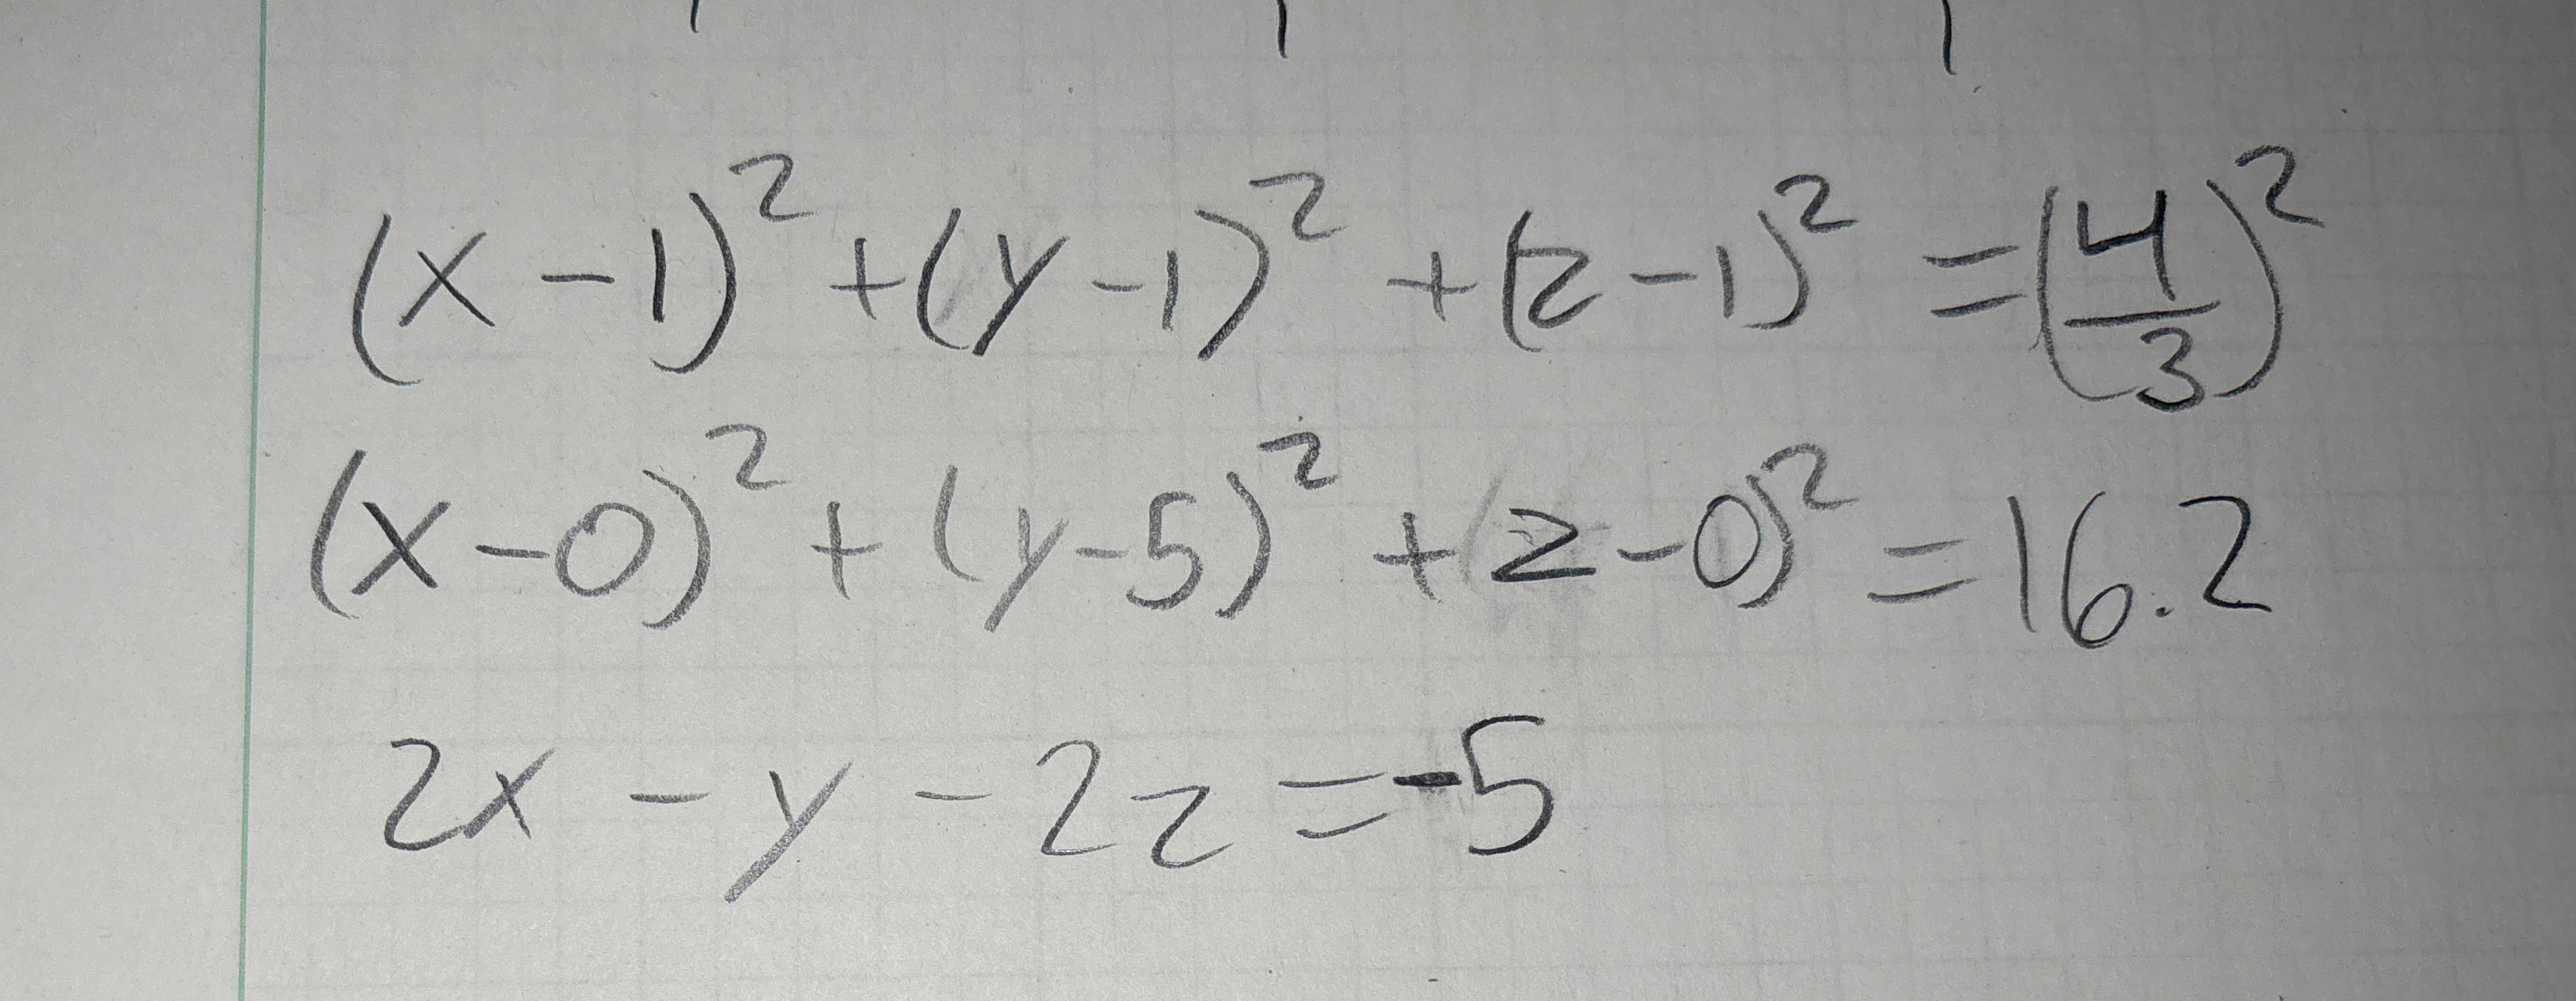 (x-1)² + (y-1)² + (z-1)² = (4/3)²
(x-0)² + (y-5)² + (z-0)² = 16.2
2x - y - 2z = -5